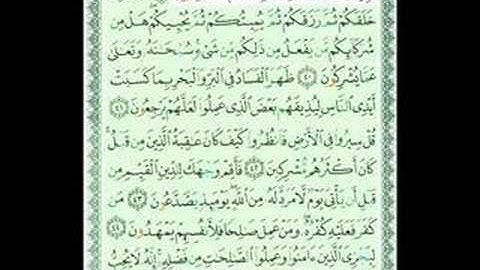 خَلَقَكُمْ ثُمَّ رَزَقَكُمْ ثُمَّ يُمِيتُكُمْ ثُمَّ يُحْيِيكُمْ هَلْ مِن
شُرَكَآئِكُم مَّن يَفْعَلُ مِن ذَٰلِكُم مِّن شَىْءٍ سُبْحَـٰنَهُۥ وَتَعَـٰلَىٰ
عَمَّا يُشْرِكُونَ ٤٠ ظَهَرَ ٱلْفَسَادُ فِى ٱلْبَرِّ وَٱلْبَحْرِ بِمَا كَسَبَتْ
أَيْدِى ٱلنَّاسِ لِيُذِيقَهُم بَعْضَ ٱلَّذِى عَمِلُوا۟ لَعَلَّهُمْ يَرْجِعُونَ ٤١
قُلْ سِيرُوا۟ فِى ٱلْأَرْضِ فَٱنظُرُوا۟ كَيْفَ كَانَ عَـٰقِبَةُ ٱلَّذِينَ مِن قَبْلُ
كَانَ أَكْثَرُهُم مُّشْرِكِينَ ٤٢ فَأَقِمْ وَجْهَكَ لِلدِّينِ ٱلْقَيِّمِ مِن
قَبْلِ أَن يَأْتِىَ يَوْمٌ لَّا مَرَدَّ لَهُۥ مِنَ ٱللَّهِ يَوْمَئِذٍ يَصَّدَّعُونَ ٤٣ مَن
كَفَرَ فَعَلَيْهِ كُفْرُهُۥ وَمَنْ عَمِلَ صَـٰلِحًا فَلِأَنفُسِهِمْ يَمْهَدُونَ ٤٤
لِيَجْزِىَ ٱلَّذِينَ ءَامَنُوا۟ وَعَمِلُوا۟ ٱلصَّـٰلِحَـٰتِ مِن فَضْلِهِۦٓ إِنَّهُۥ لَا يُحِبُّ